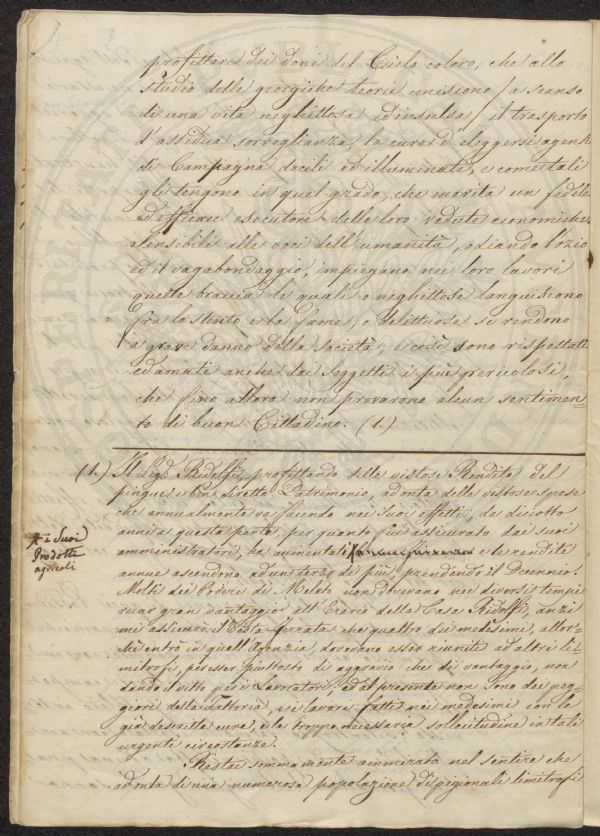 profittare dei doni del Cielo coloro, che allo
studio delle georgiche teorie uniscono (a scanso
di una vita neghittosa ed insulsa) il trasporto
d'assidua sorveglianza, la cura d'eleggersi agenti
di Campagna docili ed illuminati, e come tali
gli tengono in quel grado, che merita un fedele
ed efficace esecutore delle loro vedute economiche.
Sensibili alle voci dell'umanità, odiando l'ozio
ed il vagabondaggio, impiegano nei loro lavori
queste braccia le quali o neghittose languiscono
fra lo stento e la fame, o delittuose si rendono
a grave danno della società; e così sono rispettati
ed amati anche dai soggetti i più pericolosi,
che fino allora non provarono alcun sentimen-
to di buon Cittadino. (1.)
(1.) Il Sigr. Ridolfi, profittando delle vistose Rendite del
pingue e ben diretto Patrimonio, ad onta delle vistose spese
che annualmente va facendo nei suoi affitti, da diciotto
anni a questa parte per quanto fui assicurato dai suoi
amministratori, ha aumentati e le rendite
annue ascendono ad un terzo di più, prendendo il Decennio.
i Suoi
Prodotti
agricoli
Molti dei Poderi di Meleto non dovevano nei diversi tempi
recar gran vantaggio all'Erario della Casa Ridolfi, anzi
mi assicurò il Testaferrata che quattro dei medesimi, allor-
chè entrò in quell'Agenzia, dovevano esser riuniti ad altri li-
mitrofi, per esser piuttosto di aggravio che di vantaggio, non
dando il vitto per i Lavoratori: ed al presente non sono dei peg-
giori della fattoria, e i lavori fatti nei medesimi con le
già descritte cure, e la troppo necessaria sollecitudine in tali
urgenti circostanze.
Restai sommamente ammirato nel sentire che
ad onta di una numerosa popolazione di pigionali limitrofi